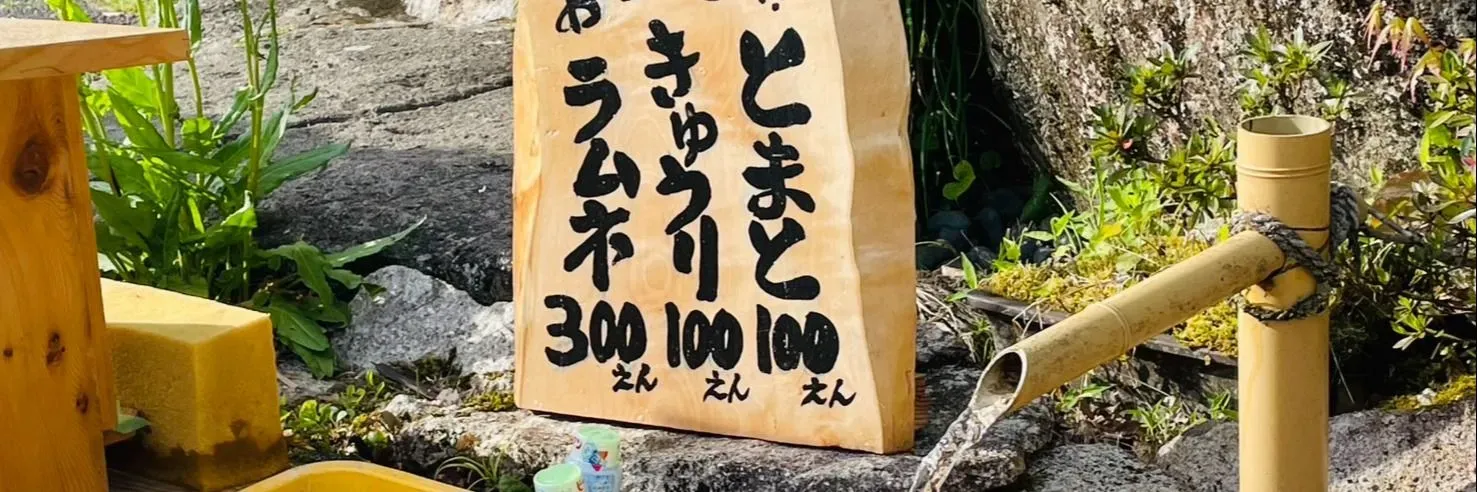 とまと 100えん
きゅうり 100えん
ラムネ 300えん